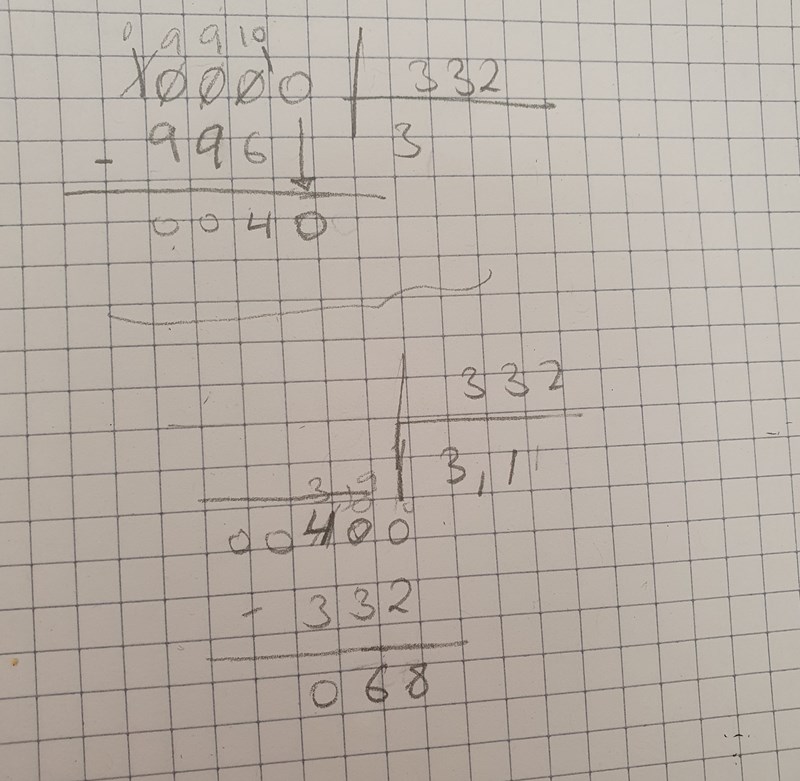 0 9 9 10
10000 332
- 996 3
0040
332
3,1
3 9
00400
- 332
068